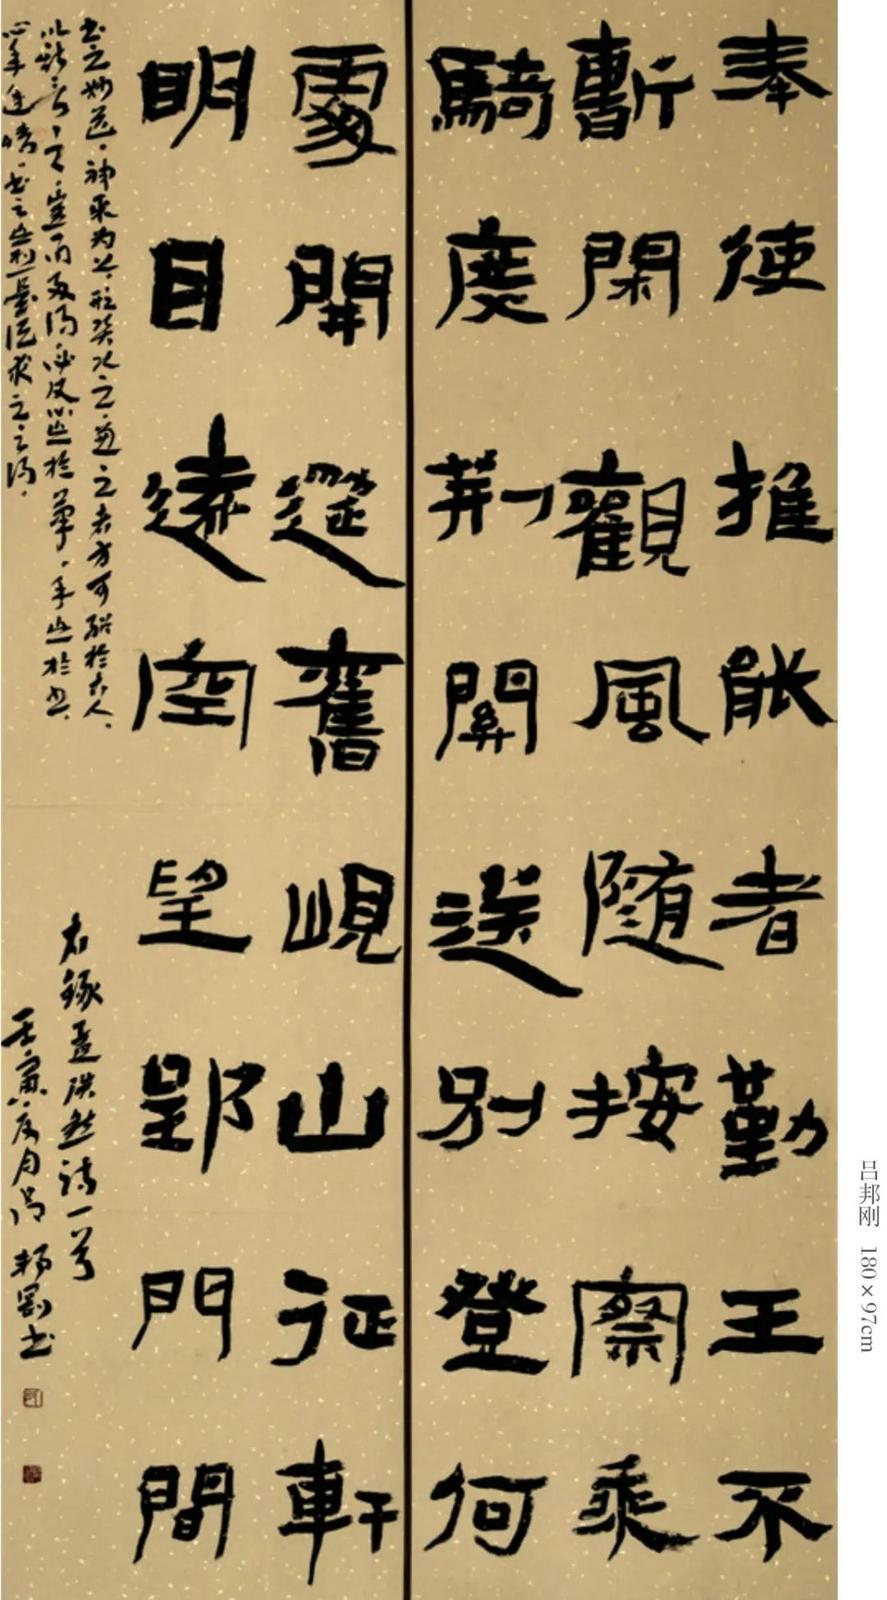 奉使推能者勤王不
暫閑觀風隨按察乘
騎度荆關送別登何
處開筵舊峴山征軒
明目遠空望郢門間
書之妙道神采为上形質次之兼之者方可紹於古人
以斯言之豈易多得必使心忘於筆手忘於書
心手達情書不忘想是謂求之不得
右録孟浩然詩一首
壬寅夏月吕邦剛書
吕邦刚 180×97cm